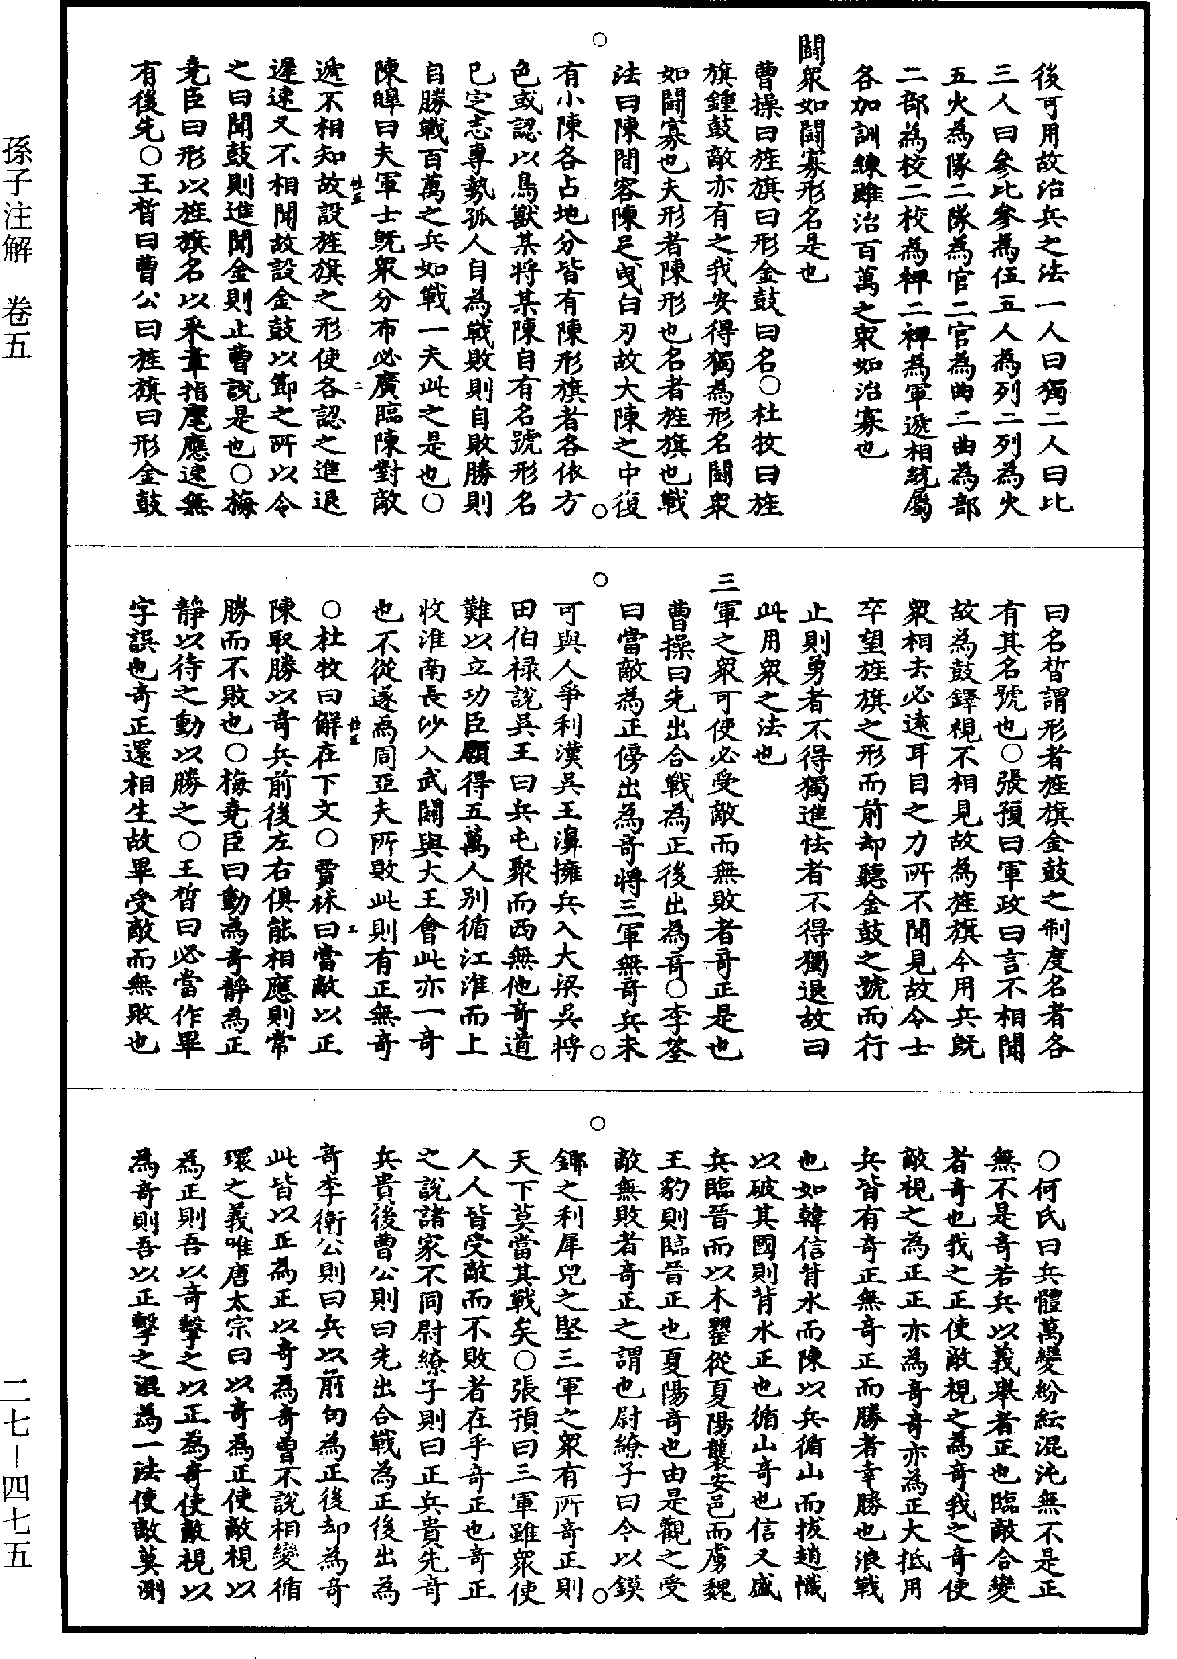 孫子注解　卷五
二七—四七五
後可用故治兵之法一人曰獨二人曰比
三人曰參比參為伍五人為列二列為火
五火為隊二隊為官二官為曲二曲為部
二部為校二校為裨二裨為軍遞相統屬
各加訓練雖治百萬之眾如治寡也
鬬眾如鬬寡形名是也
曹操曰旌旗曰形金鼓曰名○杜牧曰旌
旗鍾鼓敵亦有之我安得獨為形名鬬眾
如鬬寡也夫形者陳形也名者旌旗也戰
法曰陳間容陳足曵白刃故大陳之中復
有小陳各占地分皆有陳形旗者各依方
色或認以鳥獸某將某陳自有名號形名
已定志專勢孤人自為戰敗則自敗勝則
自勝戰百萬之兵如戰一夫此之是也○
陳皥曰夫軍士旣眾分布必廣臨陳對敵
遞不相知故設旌旗之形使各認之進退
遲速又不相聞故設金鼓以節之所以令
之曰聞鼓則進聞金則止曹說是也○梅
堯臣曰形以旌旗名以采章指麾應速無
有後先○王晳曰曹公曰旌旗曰形金鼓
曰名晳謂形者旌旗金鼓之制度名者各
有其名號也○張預曰軍政曰言不相聞
故為鼓鐸視不相見故為旌旗今用兵旣
眾相去必遠耳目之力所不聞見故令士
卒望旌旗之形而前却聽金鼓之號而行
止則勇者不得獨進怯者不得獨退故曰
此用眾之法也
三軍之眾可使必受敵而無敗者奇正是也
曹操曰先出合戰為正後出為奇○李筌
曰當敵為正傍出為奇將三軍無奇兵未
可與人爭利漢吳王濞擁兵入大梁吳將
田伯祿說吳王曰兵屯聚而西無他奇道
難以立功臣願得五萬人別循江淮而上
收淮南長沙入武關與大王會此亦一奇
也不從遂為周亞夫所敗此則有正無奇
○杜牧曰解在下文○賈林曰當敵以正
陳取勝以奇兵前後左右俱能相應則常
勝而不敗也○梅堯臣曰動為奇靜為正
靜以待之動以勝之○王晳曰必當作畢
字誤也奇正還相生故畢受敵而無敗也
○何氏曰兵體萬變紛紜混沌無不是正
無不是奇若兵以義舉者正也臨敵合變
者奇也我之正使敵視之為奇我之奇使
敵視之為正正亦為奇奇亦為正大抵用
兵皆有奇正無奇正而勝者幸勝也浪戰
也如韓信背水而陳以兵循山而拔趙幟
以破其國則背水正也循山奇也信又盛
兵臨晉而以木罌從夏陽襲安邑而虜魏
王豹則臨晉正也夏陽奇也由是觀之受
敵無敗者奇正之謂也尉繚子曰今以鏌
鋣之利犀兕之堅三軍之眾有所奇正則
天下莫當其戰矣○張預曰三軍雖眾使
人人皆受敵而不敗者在乎奇正也奇正
之說諸家不同尉繚子則曰正兵貴先奇
兵貴後曹公則曰先出合戰為正後出為
奇李衛公則曰兵以前向為正後却為奇
此皆以正為正以奇為奇曾不說相變循
環之義唯唐太宗曰以奇為正使敵視以
為正則吾以奇擊之以正為奇使敵視以
為奇則吾以正擊之混為一法使敵莫測